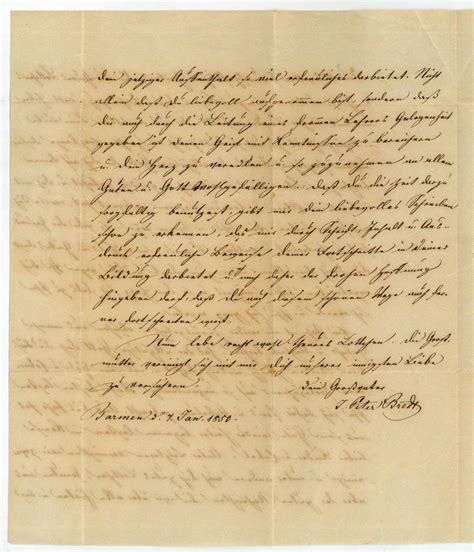 dein jetziger Aufenthalt so viel erfreuliches darbietet. Nicht
allein daß du liebevoll aufgenommen bist, sondern daß
dir auch durch die Leitung eines frommen Lehrers Gelegenheit
gegeben ist deinen Geist mit Kenntnißen zu bereichern
u. dein Herz zu veredlen u. so zuzunehmen an allem
Guten u. Gott wohlgefälligen. Daß du die Zeit dazu
sorgfältig benutzest, gibt mir dein liebevolles Schreiben
schon zu erkennen, das mir durch Schrift, Inhalt u. Aus-
druck erfreuliche Beweise deiner Fortschritte in deiner
Bildung darbietet u. ich mich daher der frohen Hoffnung
hingeben darf, daß du auf diesem schönen Wege auch fer-
ner fortschreiten wirst.
Nun lebe recht wohl theures Lottchen. Die Groß-
mutter vereinigt sich mit mir dich unserer innigsten Liebe
zu versichern.
Dein Großvater
J. Peter Bredt
Barmen d. 7. Jan. 1850.